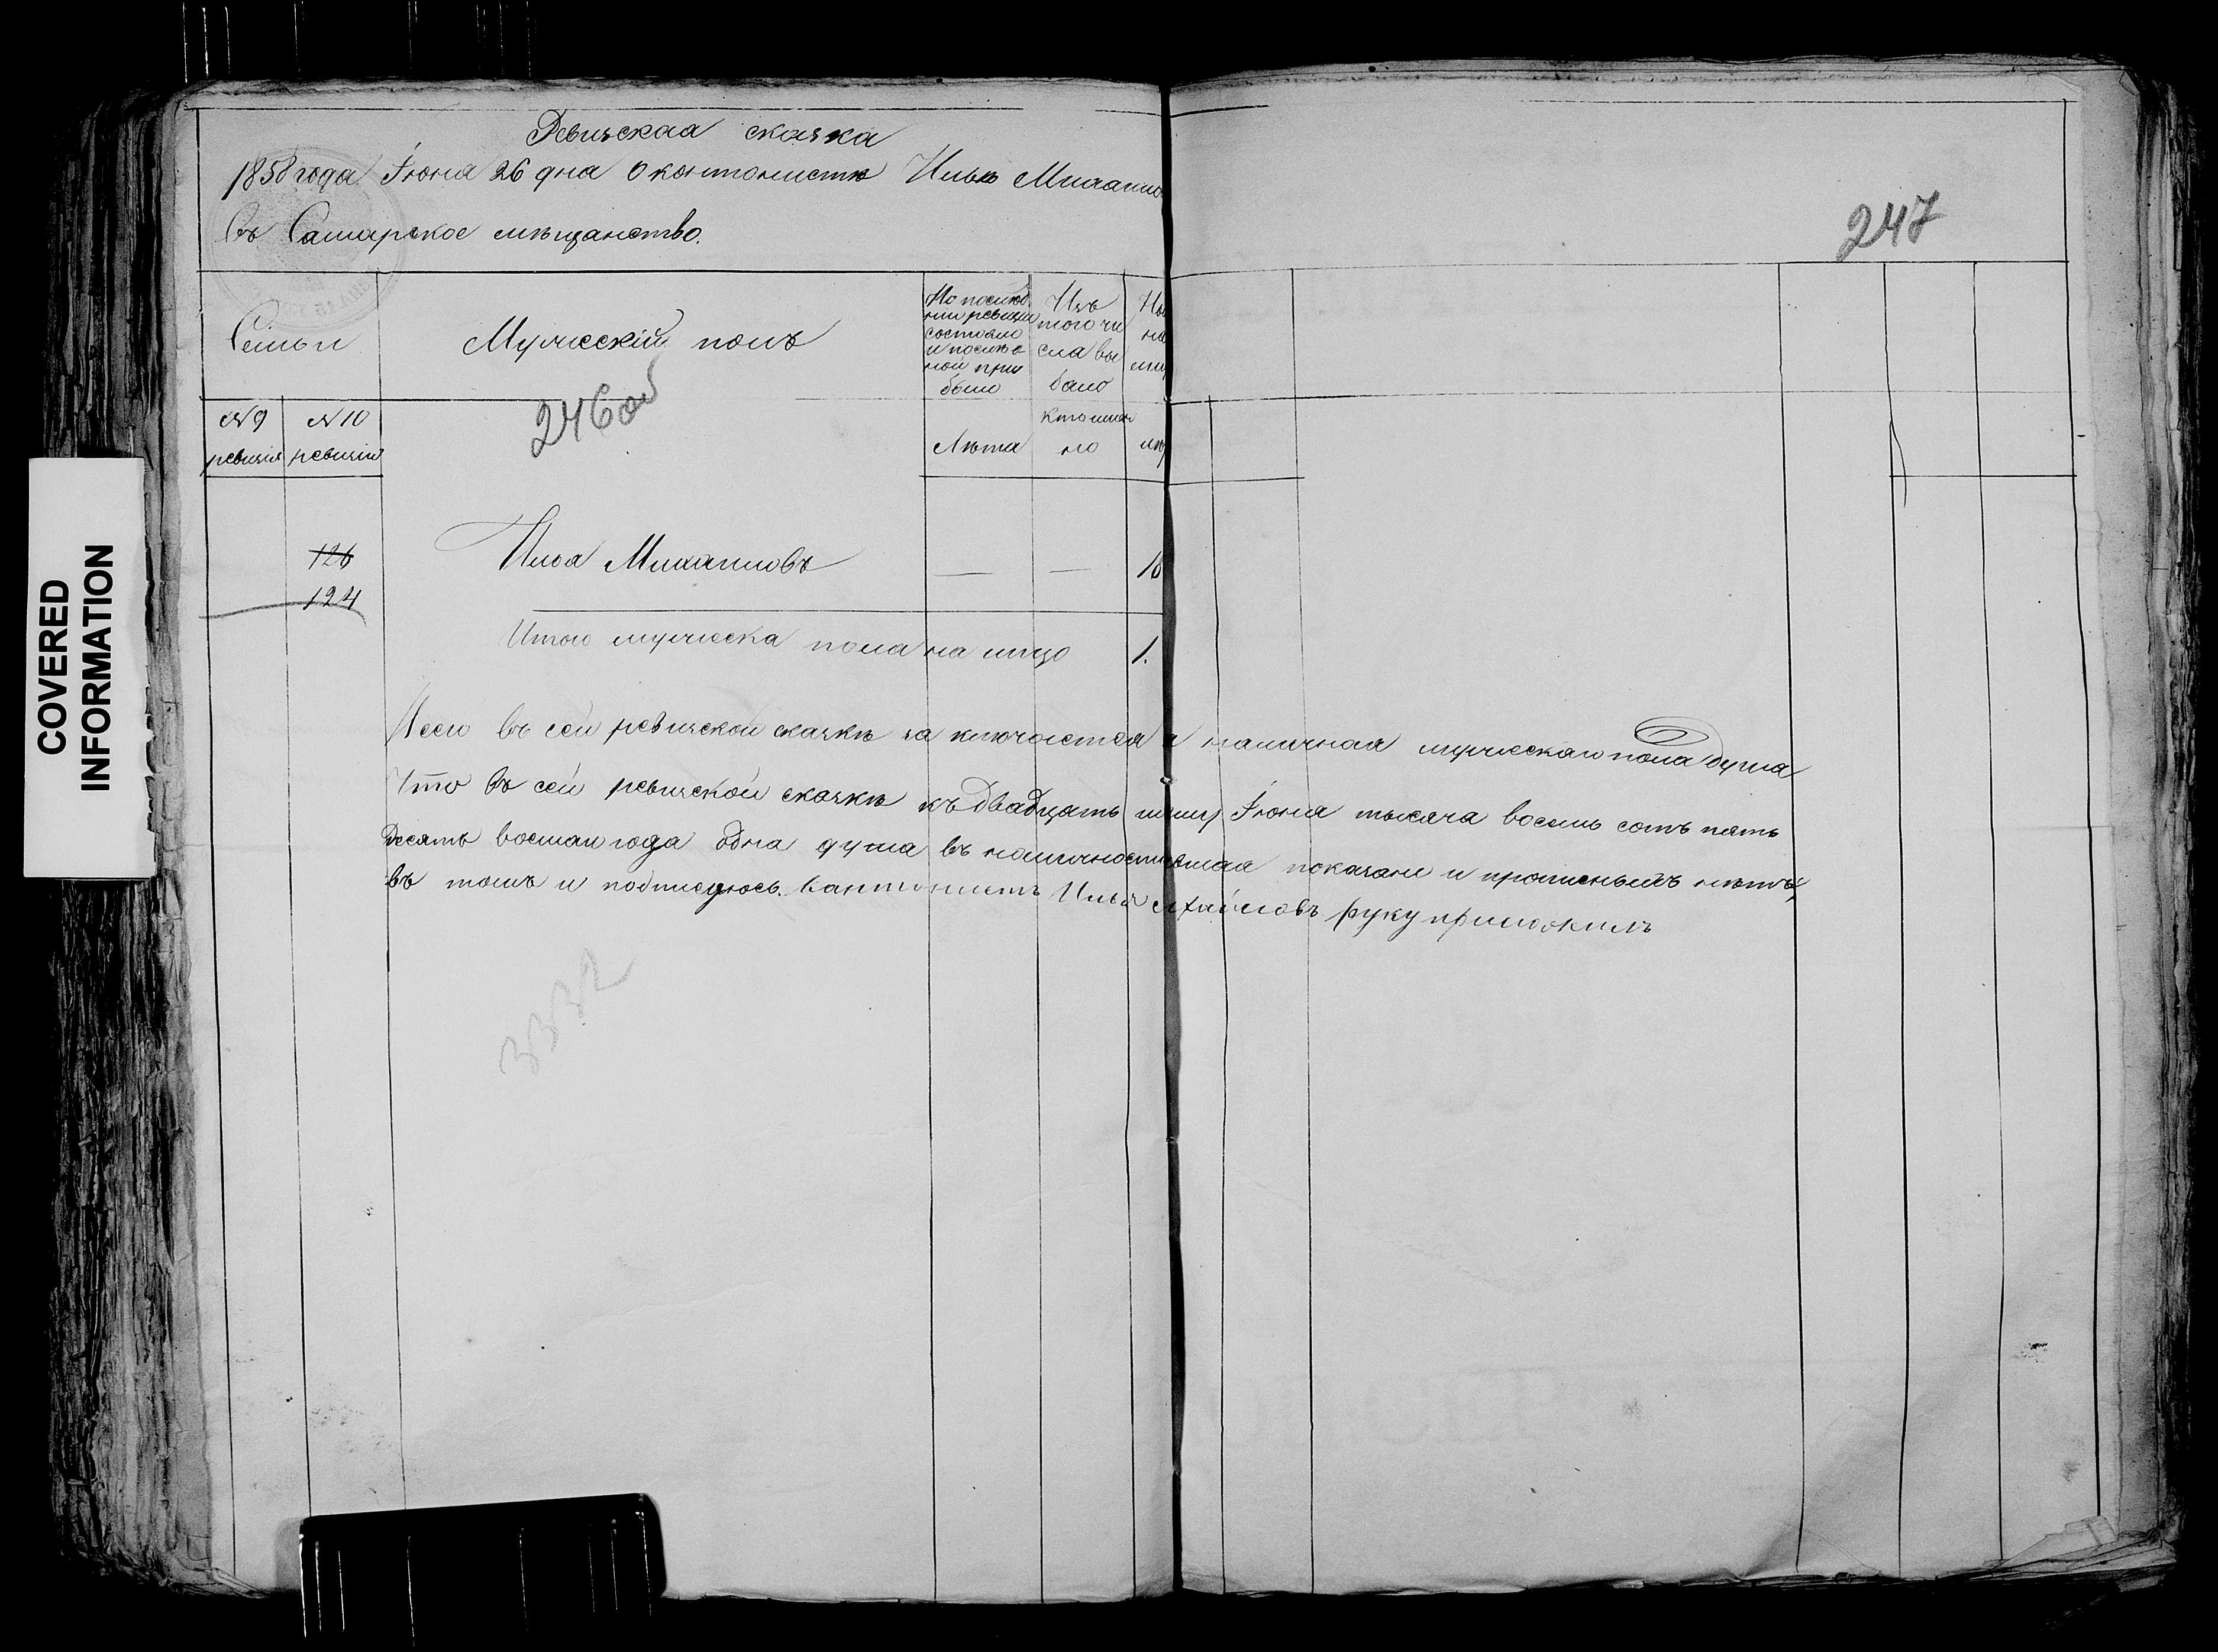 Ревизская сказка
1858 года Іюня 26 дня О кантонистѣ Ильѣ Михаило
въ Самарское мѣщанство.
247
Семьи
Мужескій полъ
По послѣд
ней ревизіи
состояло
и послѣ о
ной при
было
Изъ
того чи
сла вы
было
Ны
на
лиц
246об
№ 9
ревизія
№ 10
ревизія
Лѣта
Когда имен
но
лѣ
126
124
Илья Михаиловъ — — 18
Итого мужеска пола на лицо 1.
Всего въ сей ревизской сказкѣ заключается 1 наличная мужескаго пола душа
Что въ сей ревизской сказкѣ къ двадцать Іюня тысяча восемь сотъ пять
десятъ восмаго года одна душа въ наличности показана и прописныхъ нѣтъ,
въ томъ и подписуюсь. Кантонистъ Илья михайловъ руку приложилъ
3332
COVERED
INFORMATION